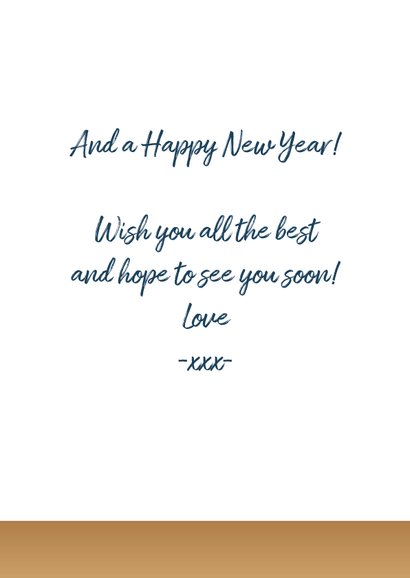 And a Happy New Year!
Wish you all the best
and hope to see you soon!
Love
-xxx-